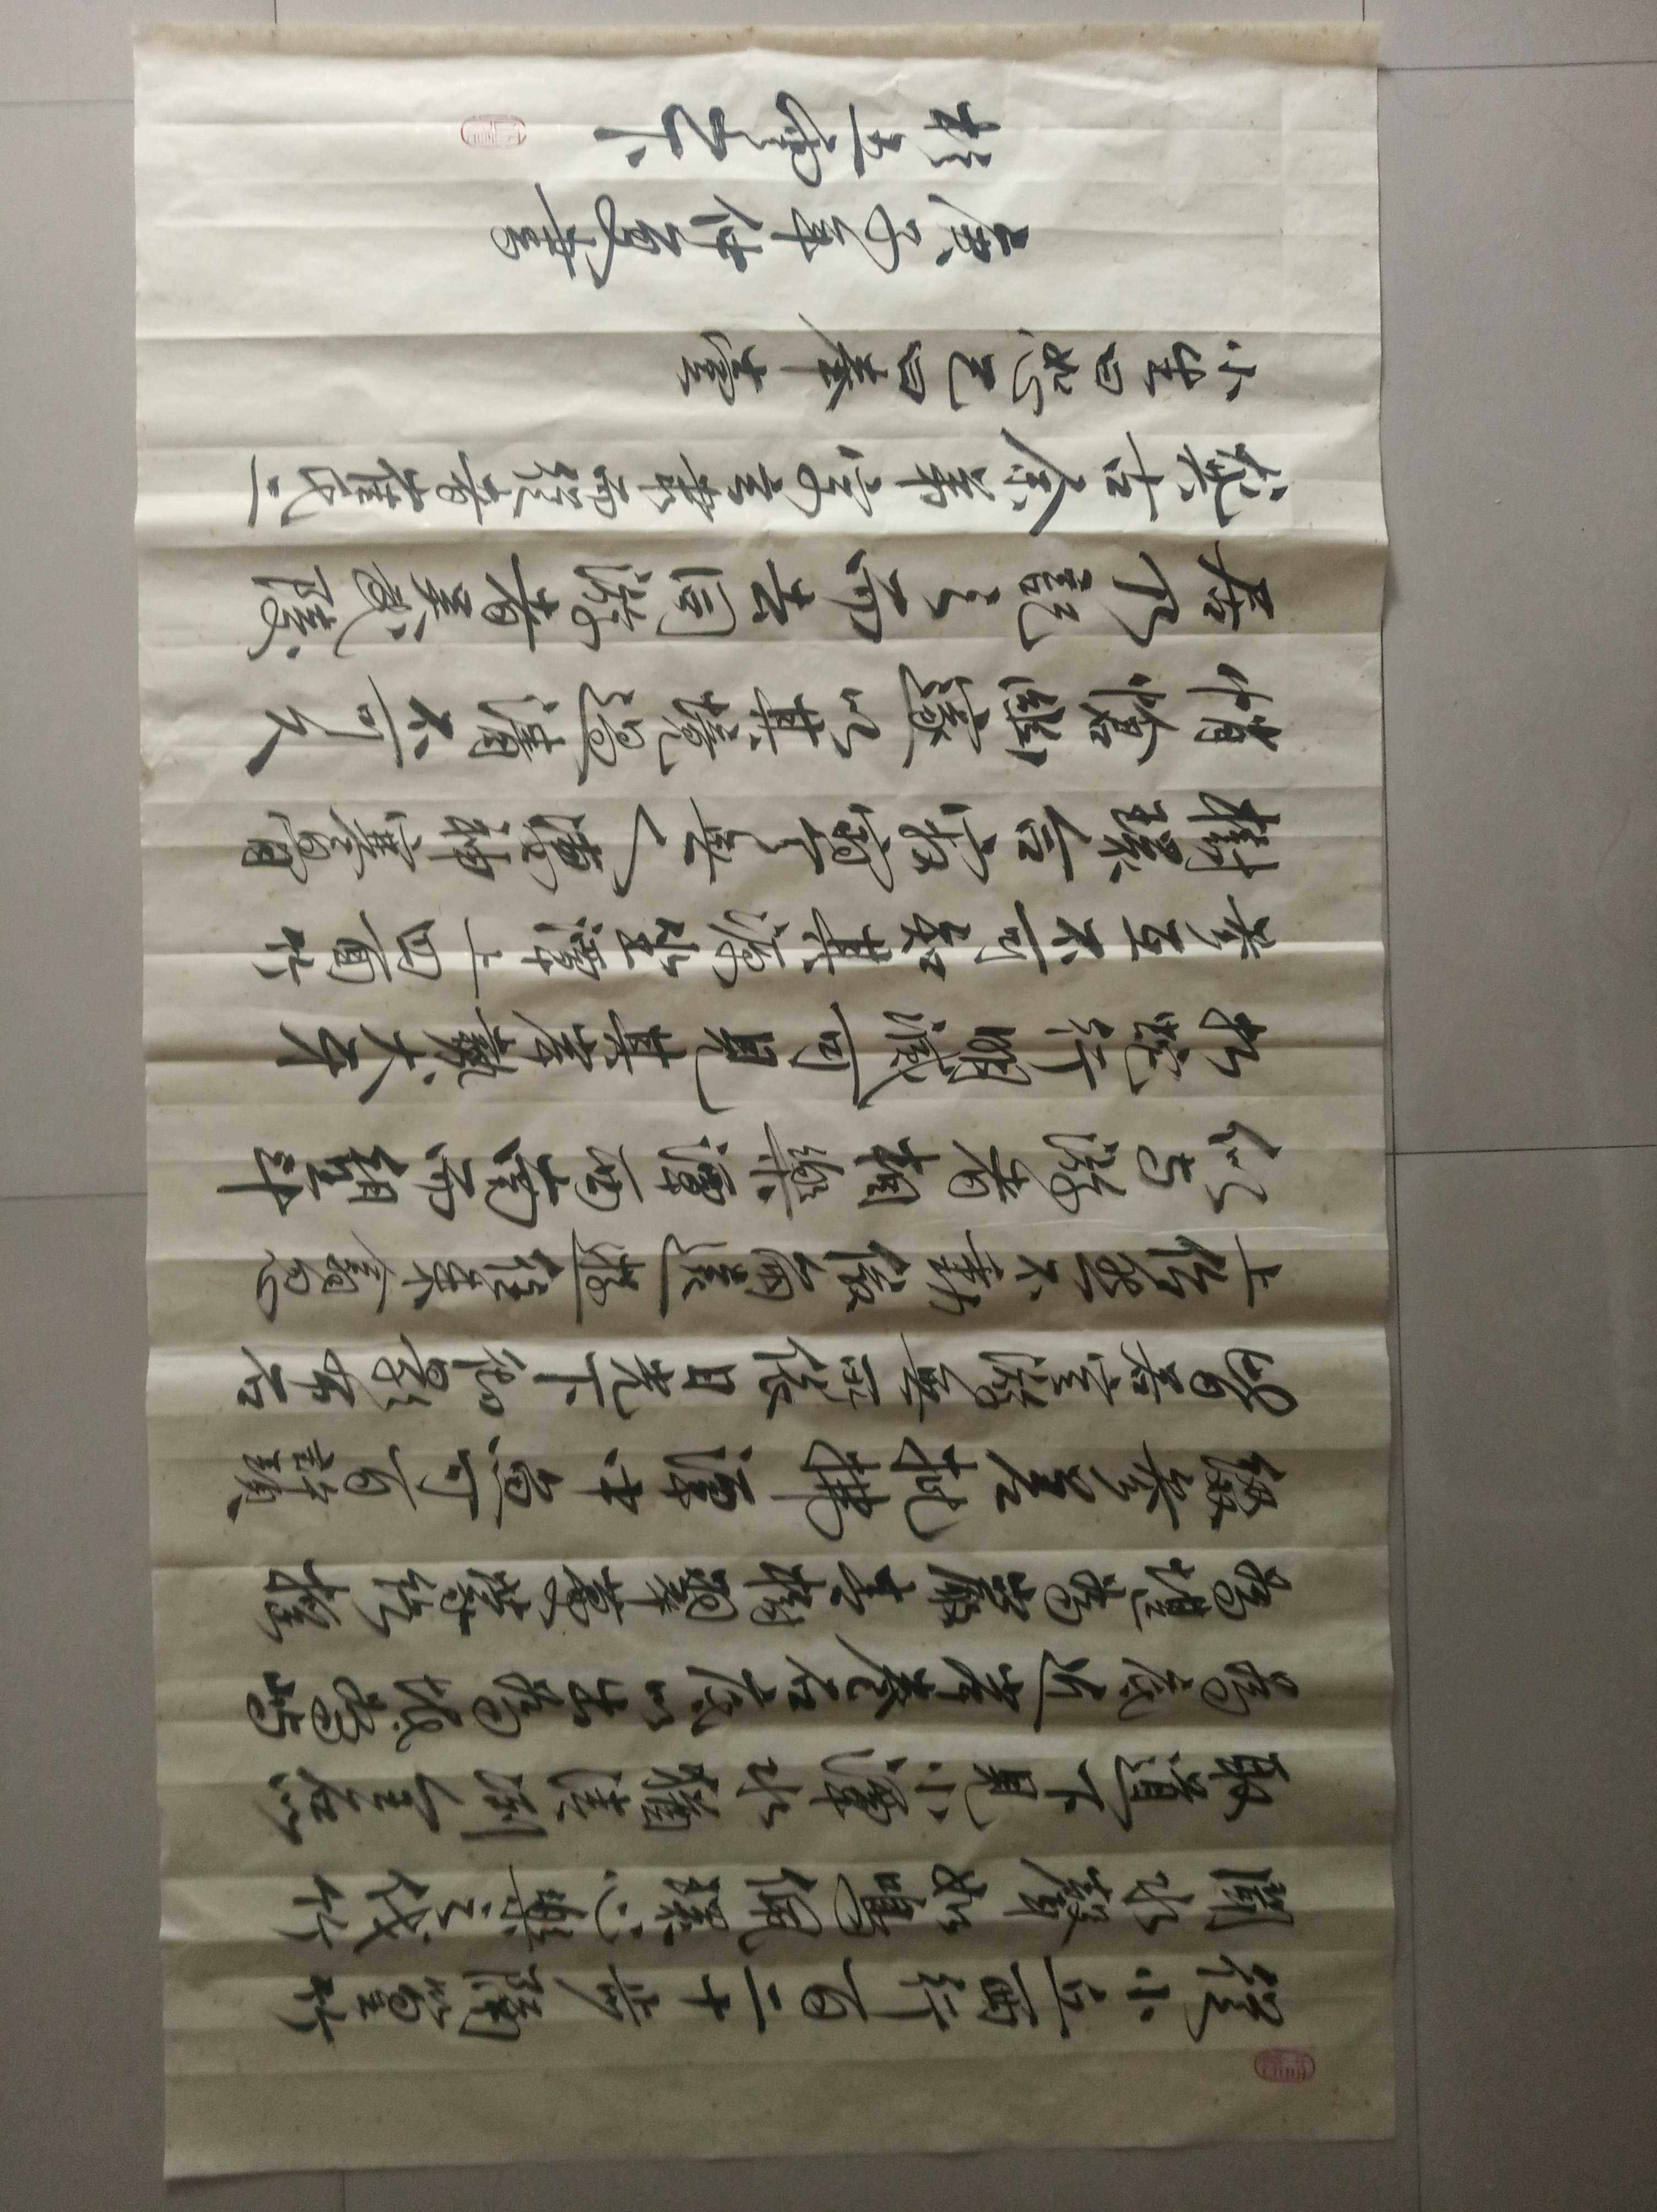 從小丘西行百二十步隔篁竹
聞水聲如鳴佩環心樂之伐竹
取道下見小潭水尤清洌全石以
為底近岸卷石底以出為坻為嶼
為嵁為巖青樹翠蔓蒙絡搖
綴參差披拂潭中魚可百許頭
皆若空游無所依日光下徹影布石
上佁然不動俶爾遠逝往來翕忽
似與游者相樂潭西南而望斗
折蛇行明滅可見其岸勢犬牙
差互不可知其源坐潭上四面竹
樹環合寂寥無人淒神寒骨
悄愴幽邃以其境過清不可久
居乃記之而去同游者吳武陵
龔古余弟宗玄隸而從者崔氏二
小生曰恕己曰奉壹